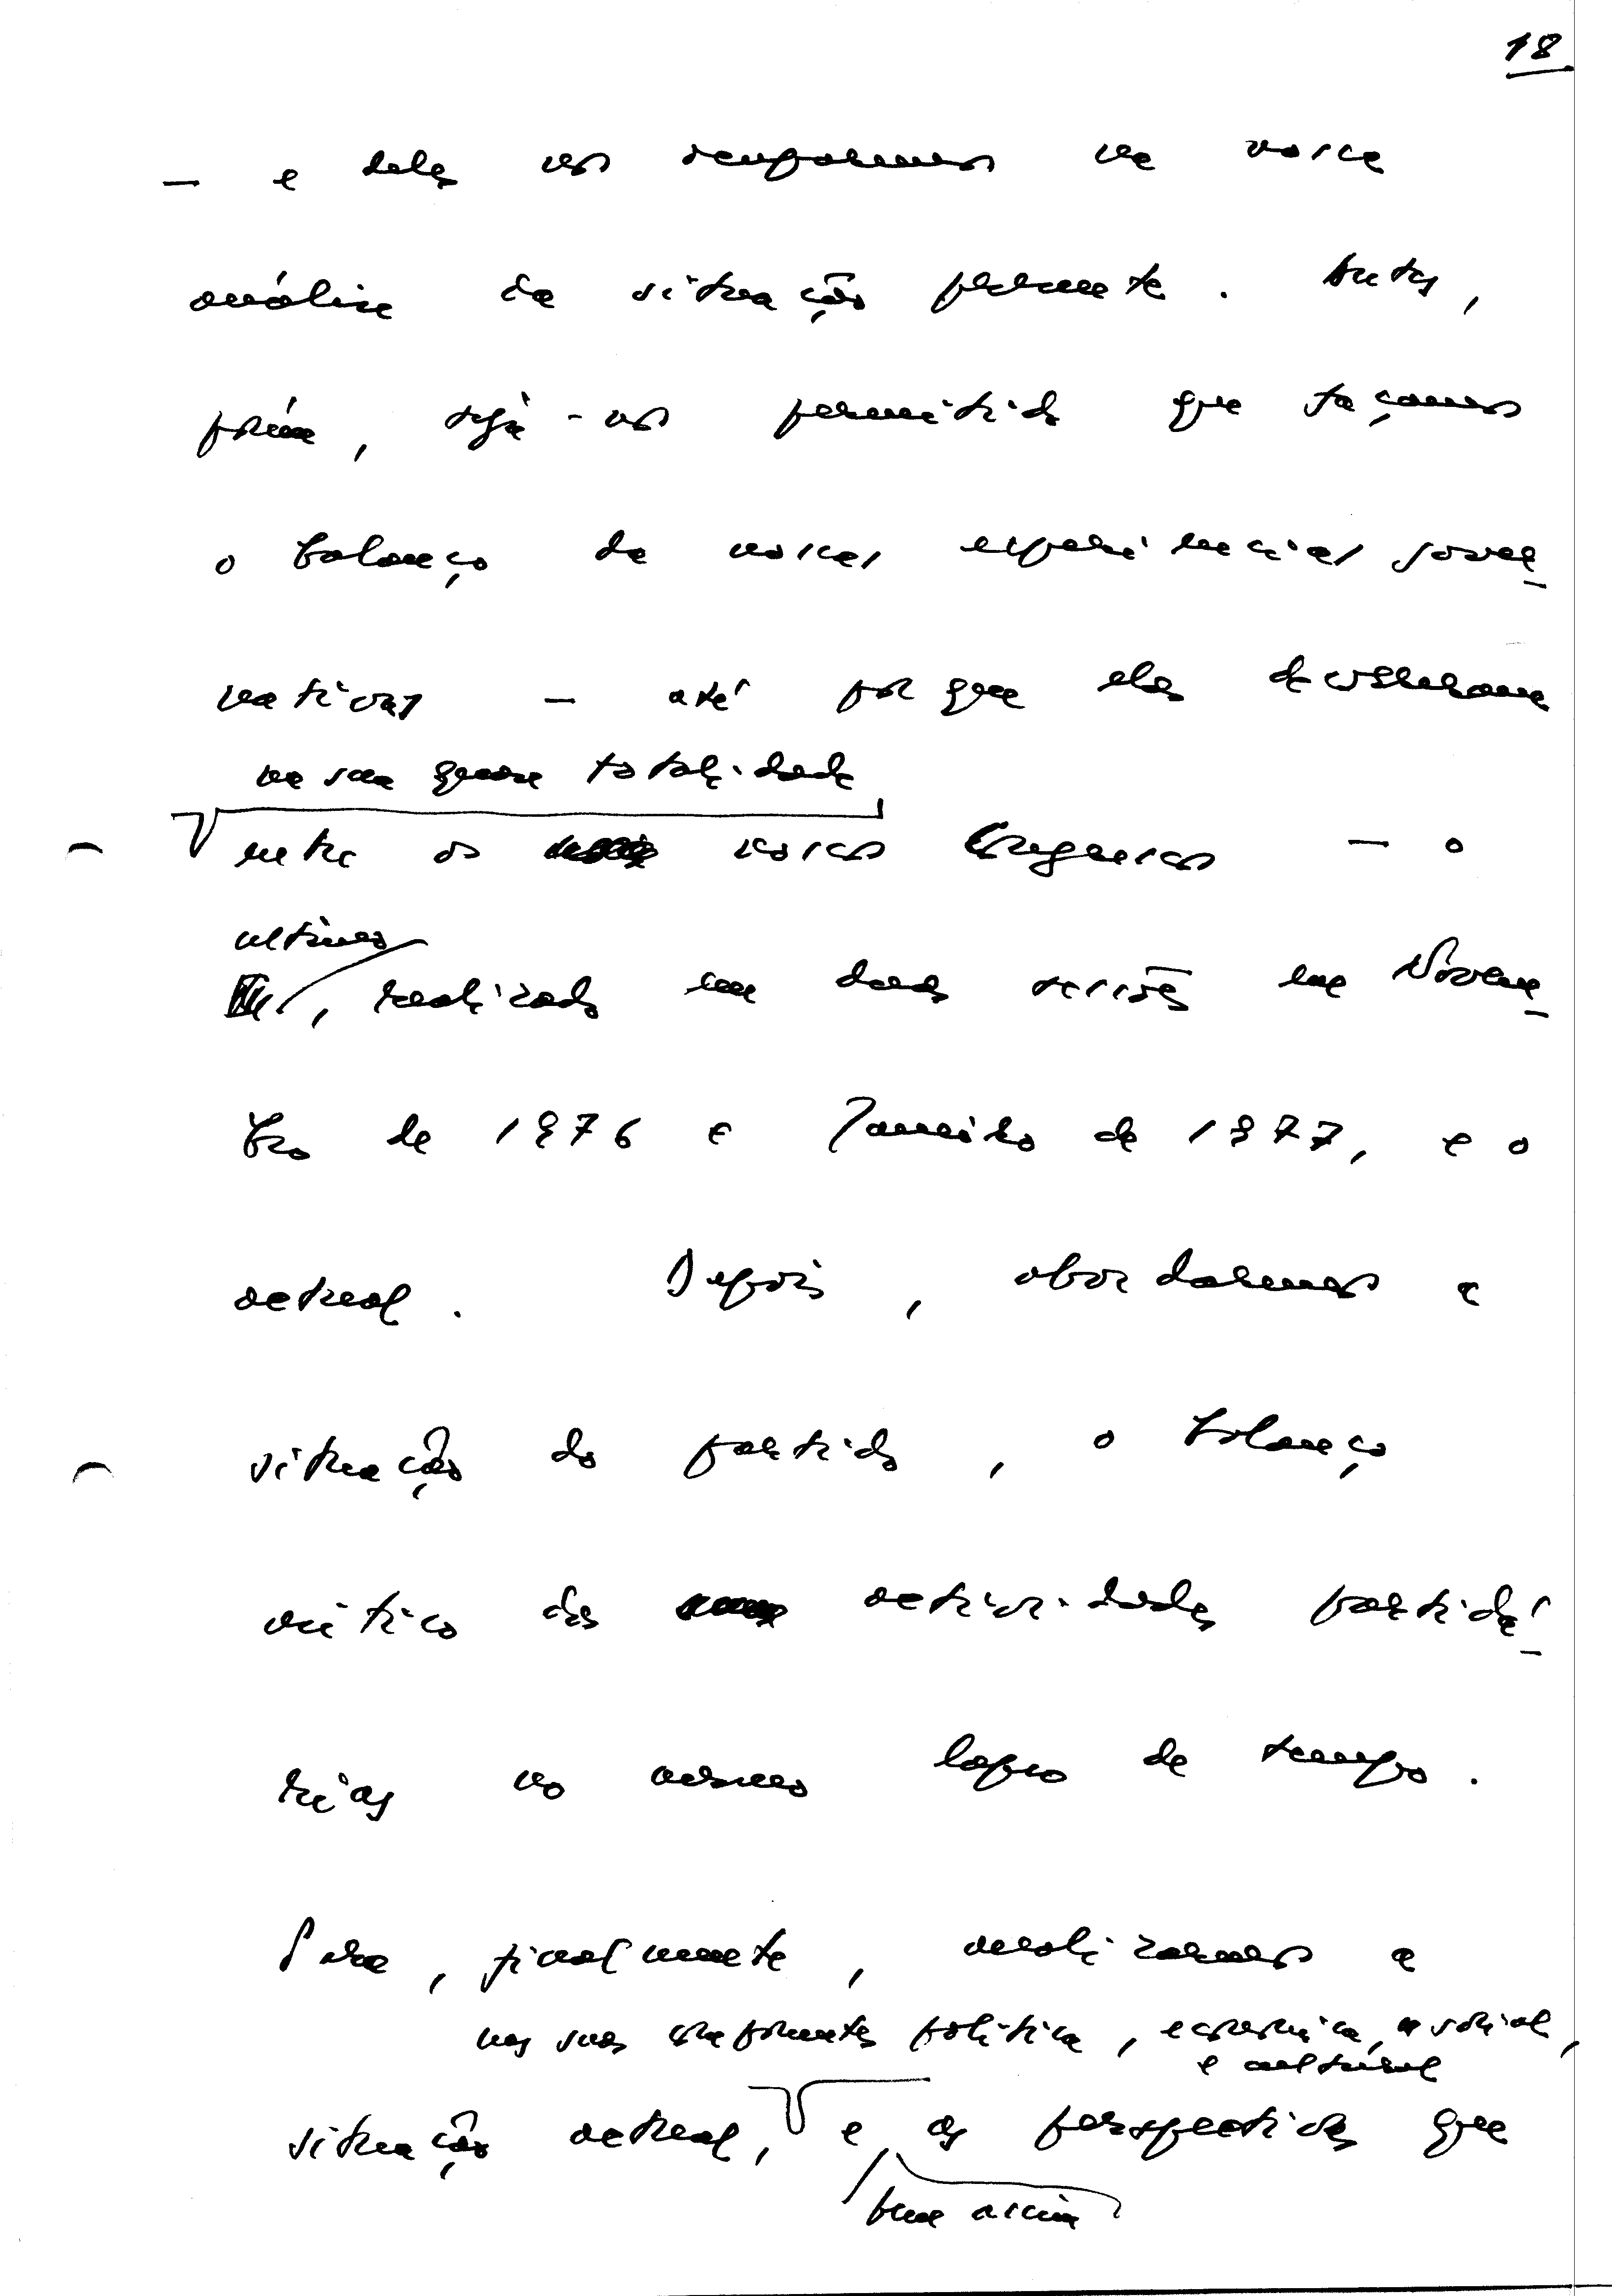 18
— e delas nos ocuparemos na nossa
análise da situação presente. Antes,
porém, seja-nos permitido que façamos
o balanço das nossas experiências gover-
nativas — até porque elas decorreram
na sua quase totalidade
entre os nossos Congressos — o
último
, realizado em duas sessões em Novem-
bro de 1976 e Janeiro de 1977, e o
actual. Depois, abordaremos a
situação do partido, o balanço
crítico das actividades partidá-
rias no mesmo lapso de tempo.
Para, finalmente, analisarmos a
nas suas componentes política, económica, social,
e cultural
situação actual, e as perspectivas que
bem assim